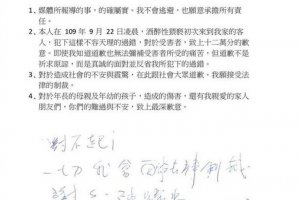 1. 媒體所報導的事,的確屬實、我不會逃避,也願意承擔所有責
任。
2. 本人在 109 年 9 月 22 日凌晨,酒醉性猥褻初次來到我家的客
人,犯下這樣不容天理的過錯,對於受害者,致上十二萬分的歉
意。即使我知道道歉也無法彌補受害者所受的痛苦,但道歉不是
祈求原諒,而是真誠的面對並反省我所犯下的過錯。
3. 對於造成社會的不安與震驚,在此跟社會大眾道歉、我願接受法
律的制裁。
4. 對於年長的母親及年幼的孩子,造成的傷害,還有我親愛的家人
朋友們,你們的難過與不安,致上最深歉意。
對不起!
一切我會面對法律制裁